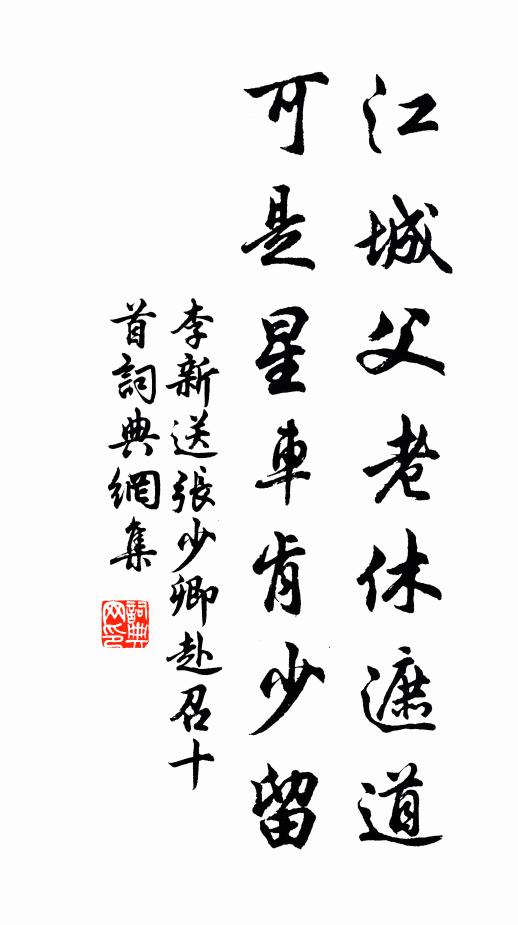 江城父老休遮道
可是星車肯少留
李新送張少卿赴召十
首詞典網集
詞典
网印